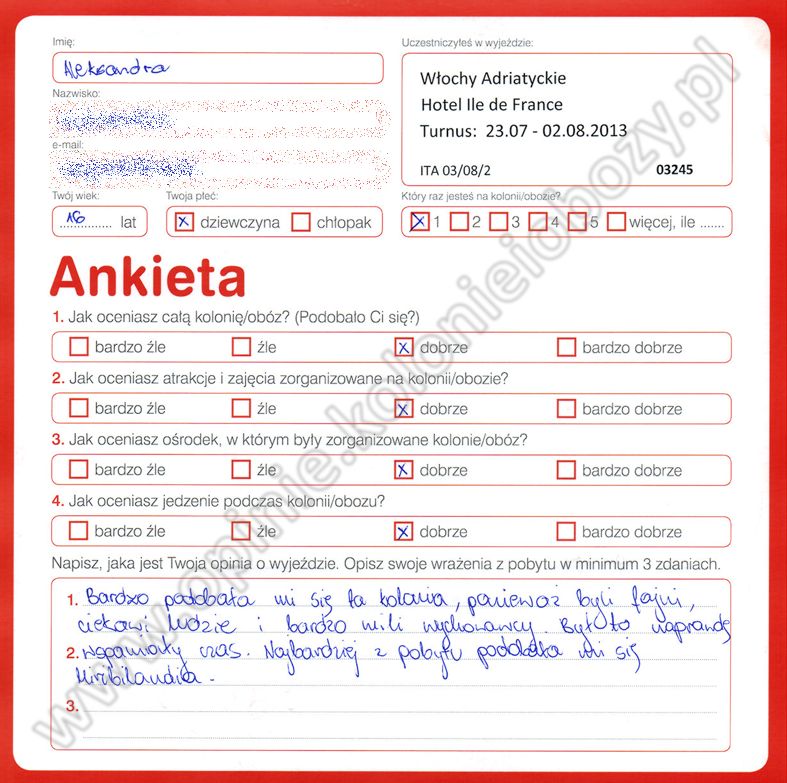 Imię:
Aleksandra
Uczestniczyłeś w wyjeździe:
Włochy Adriatyckie
Hotel Ile de France
Turnus: 23.07 - 02.08.2013
ITA 03/08/2 03245
Nazwisko:
e-mail:
Twój wiek:
16 lat
Twoja płeć:
x dziewczyna chłopak
Który raz jesteś na kolonii/obozie?
x 1 2 3 4 5 więcej, ile .......
Ankieta
1. Jak oceniasz całą kolonię/obóz? (Podobało Ci się?)
bardzo źle źle x dobrze bardzo dobrze
2. Jak oceniasz atrakcje i zajęcia zorganizowane na kolonii/obozie?
bardzo źle źle x dobrze bardzo dobrze
3. Jak oceniasz ośrodek, w którym były zorganizowane kolonie/obóz?
bardzo źle źle x dobrze bardzo dobrze
4. Jak oceniasz jedzenie podczas kolonii/obozu?
bardzo źle źle x dobrze bardzo dobrze
Napisz, jaka jest Twoja opinia o wyjeździe. Opisz swoje wrażenia z pobytu w minimum 3 zdaniach.
1. Bardzo podobała mi się ta kolonia, ponieważ byli fajni,
ciekawi ludzie i bardzo mili wychowawcy. Był to naprawdę
2. wspaniały czas. Najbardziej z pobytu podobała mi się
Miribilandia.
3.
www.opinie.kolonieiobozy.pl